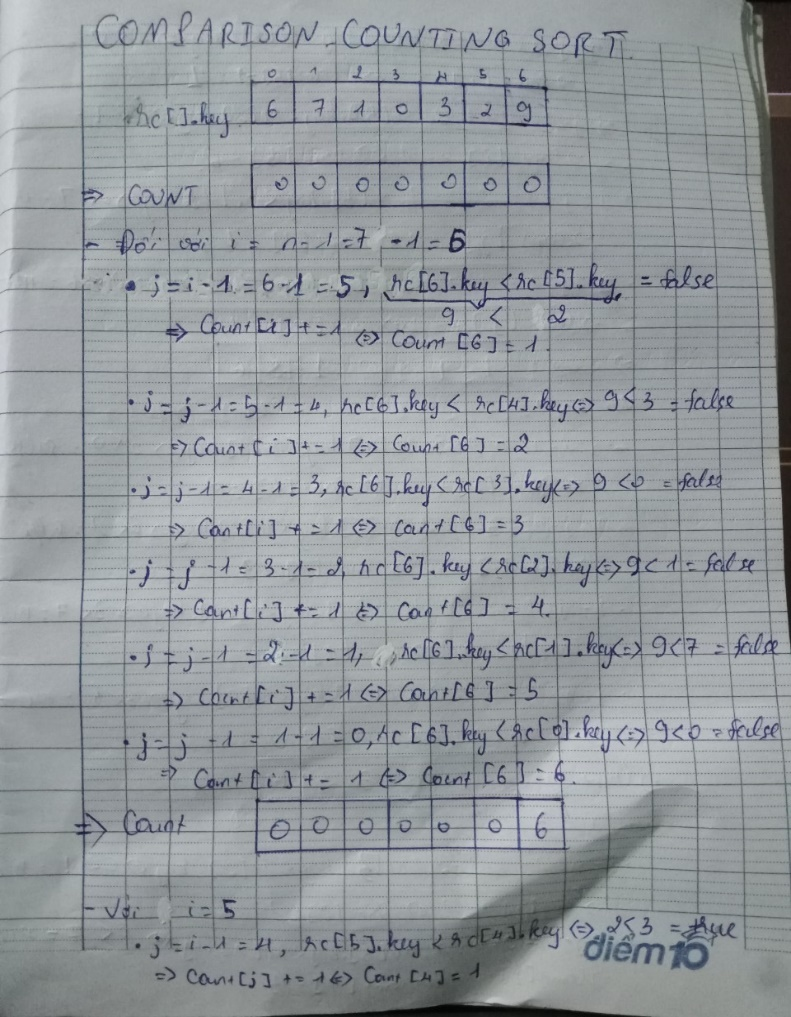 COMPARISON COUNTING SORT
0 1 2 3 4 5 6
rc[].key 6 7 1 0 3 2 9
=> COUNT 0 0 0 0 0 0 0
- Đối với i = n-1 = 7 -1 = 6
• j = i-1 = 6-1 = 5, rc[6].key < rc[5].key = false
9 < 2
=> Count[i] += 1 <=> Count [6] = 1.
• j = j-1 = 5-1 = 4, rc[6].key < rc[4].key <=> 9<3 = false
=> Count [i] += 1 <=> Count [6] = 2
• j = j-1 = 4-1 = 3, rc[6].key < rc[3].key <=> 9<0 = false
=> Count[i] += 1 <=> Count[6] = 3
• j = j-1 = 3-1 = 2, rc[6].key < rc[2].key <=> 9<1 = false
=> Count[i] += 1 <=> Count[6] = 4.
• j = j-1 = 2-1 = 1, rc[6].key < rc[1].key <=> 9<7 = false
=> Count[i] += 1 <=> Count[6] = 5
• j = j -1 = 1-1 = 0, rc[6].key < rc[0].key <=> 9<0 = false
=> Count[i] += 1 <=> Count [6] = 6.
=> Count 0 0 0 0 0 0 6
- Với i = 5
• j = i-1 = 4, rc[5].key < rc[4].key <=> 2<3 = true
điểm10
=> Count[j] += 1 <=> Count [4] = 1